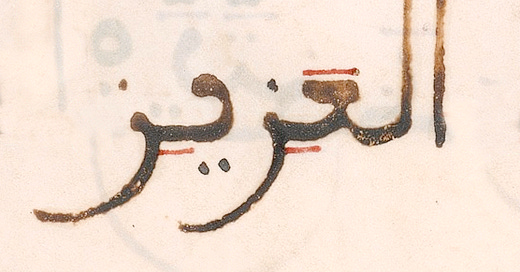 العَزِيزِ